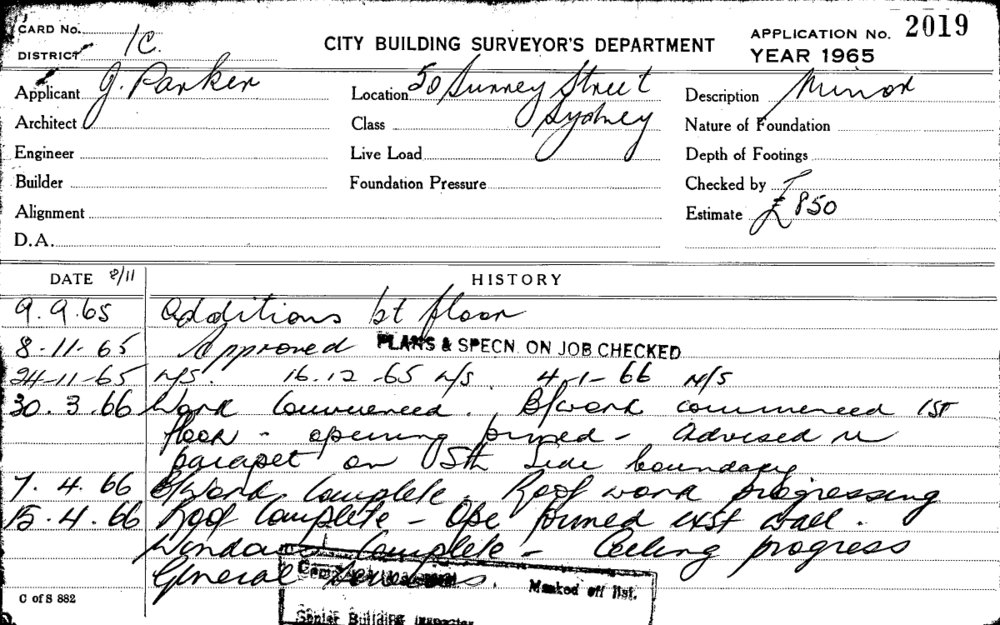 CARD No.
DISTRICT 1C.
CITY BUILDING SURVEYOR'S DEPARTMENT
APPLICATION No. 2019
YEAR 1965
Applicant J. Parker
Location 50 Surrey Street
Sydney
Description Minor
Architect
Class
Nature of Foundation
Engineer
Live Load
Depth of Footings
Builder
Foundation Pressure
Checked by
Alignment
Estimate £850
D.A.
DATE 8/11
HISTORY
9.9.65 Additions 1st floor
8-11-65 Approved PLANS & SPECN. ON JOB CHECKED
24-11-65 N/S. 16.12-65 N/S. 4-1-66 N/S
30.3.66 Work Commenced. B/work commenced 1ST
floor - opening formed - Advised re
parapet on Sth Side boundary
7.4.66 B/Work Complete. Roof work progressing
15.4.66 Roof Complete - Ope formed exst wall.
Windows Complete - Ceiling progress
General
Marked off list.
Senior Building Inspector
C of S 882